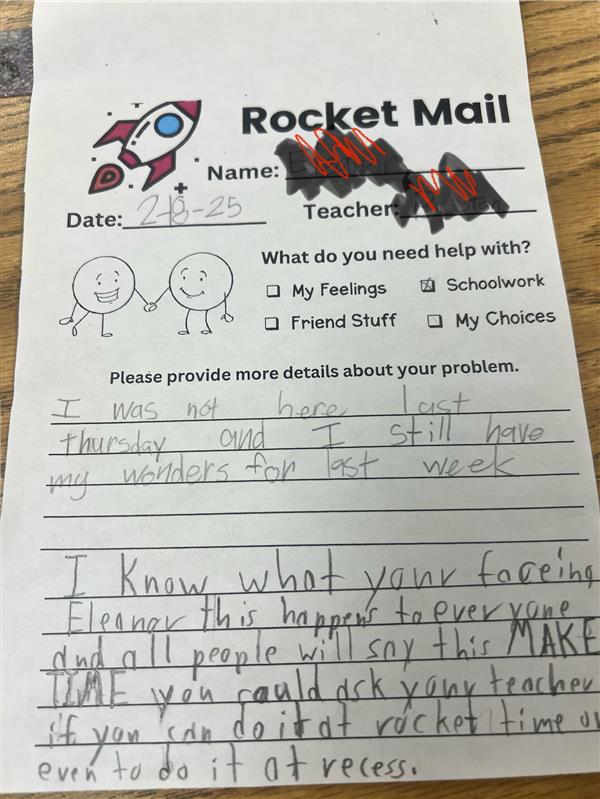 Rocket Mail
Name:
Date: 2-8-25 Teacher:
What do you need help with?
My Feelings Schoolwork
Friend Stuff My Choices
Please provide more details about your problem.
I was not here last
thursday and I still have
my wonders for last week
I know what your faceing
Eleanor this happens to everyone
and all people will say this MAKE
TIME you could ask your teacher
if you can do it at rocket time
even to do it at recess.